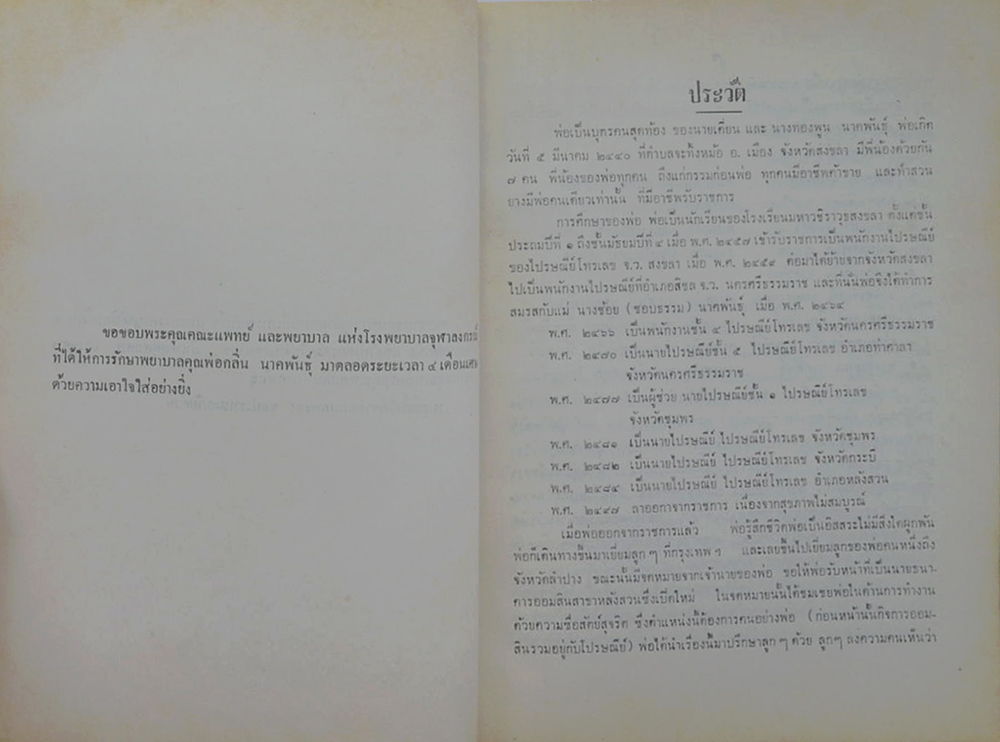 ขอขอบพระคุณคณะแพทย์ และพยาบาล แห่งโรงพยาบาลจุฬาลงกรณ์
ที่ได้ให้การรักษาพยาบาลคุณพ่อกลิ่น นาคพันธุ์ มาตลอดระยะเวลา ๔ เดือนเศษ
ด้วยความเอาใจใส่อย่างยิ่ง
ประวัติ
พ่อเป็นบุตรคนสุดท้อง ของนายเคี่ยน และ นางทองพูน นาคพันธุ์ พ่อเกิด
วันที่ ๕ มีนาคม ๒๔๔๐ ที่ตำบลจะทิ้งหม้อ อ. เมือง จังหวัดสงขลา มีพี่น้องด้วยกัน
๗ คน พี่น้องของพ่อทุกคน ถึงแก่กรรมก่อนพ่อ ทุกคนมีอาชีพค้าขาย และทำสวน
ยางมีพ่อคนเดียวเท่านั้น ที่มีอาชีพรับราชการ
การศึกษาของพ่อ พ่อเป็นนักเรียนของโรงเรียนมหาวชิราวุธสงขลา ตั้งแต่ชั้น
ประถมปีที่ ๑ ถึงชั้นมัธยมปีที่ ๔ เมื่อ พ.ศ. ๒๔๕๗ เข้ารับราชการเป็นพนักงานไปรษณีย์
ของไปรษณีย์โทรเลข จ.ว. สงขลา เมื่อ พ.ศ. ๒๔๕๙ ต่อมาได้ย้ายจากจังหวัดสงขลา
ไปเป็นพนักงานไปรษณีย์ที่อำเภอสิชล จ.ว. นครศรีธรรมราช และที่นั่นพ่อจึงได้ทำการ
สมรสกับแม่ นางช้อย (ชอบธรรม) นาคพันธุ์ เมื่อ พ.ศ. ๒๔๖๔
พ.ศ. ๒๔๖๖ เป็นพนักงานชั้น ๔ ไปรษณีย์โทรเลข จังหวัดนครศรีธรรมราช
พ.ศ. ๒๔๗๐ เป็นนายไปรษณีย์ชั้น ๕ ไปรษณีย์โทรเลข อำเภอท่าศาลา
จังหวัดนครศรีธรรมราช
พ.ศ. ๒๔๗๗ เป็นผู้ช่วย นายไปรษณีย์ชั้น ๑ ไปรษณีย์โทรเลข
จังหวัดชุมพร
พ.ศ. ๒๔๘๑ เป็นนายไปรษณีย์ ไปรษณีย์โทรเลข จังหวัดชุมพร
พ.ศ. ๒๔๘๒ เป็นนายไปรษณีย์ ไปรษณีย์โทรเลข จังหวัดกระบี่
พ.ศ. ๒๔๘๔ เป็นนายไปรษณีย์ ไปรษณีย์โทรเลข อำเภอหลังสวน
พ.ศ. ๒๔๙๗ ลาออกจากราชการ เนื่องจากสุขภาพไม่สมบูรณ์
เมื่อพ่อออกจากราชการแล้ว พ่อรู้สึกชีวิตพ่อเป็นอิสสระไม่มีสิ่งใดผูกพัน
พ่อก็เดินทางขึ้นมาเยี่ยมลูก ๆ ที่กรุงเทพ ฯ และเลยขึ้นไปเยี่ยมลูกของพ่อคนหนึ่งถึง
จังหวัดลำปาง ขณะนั้นมีจดหมายจากเจ้านายของพ่อ ขอให้พ่อรับหน้าที่เป็นนายธนา-
คารออมสินสาขาหลังสวนซึ่งเปิดใหม่ ในจดหมายนั้นได้ชมเชยพ่อในด้านการทำงาน
ด้วยความซื่อสัตย์สุจริต ซึ่งตำแหน่งนี้ต้องการคนอย่างพ่อ (ก่อนหน้านั้นกิจการออม-
สินรวมอยู่กับไปรษณีย์) พ่อได้นำเรื่องนี้มาปรึกษาลูก ๆ ด้วย ลูกๆ ลงความคนเห็นว่า